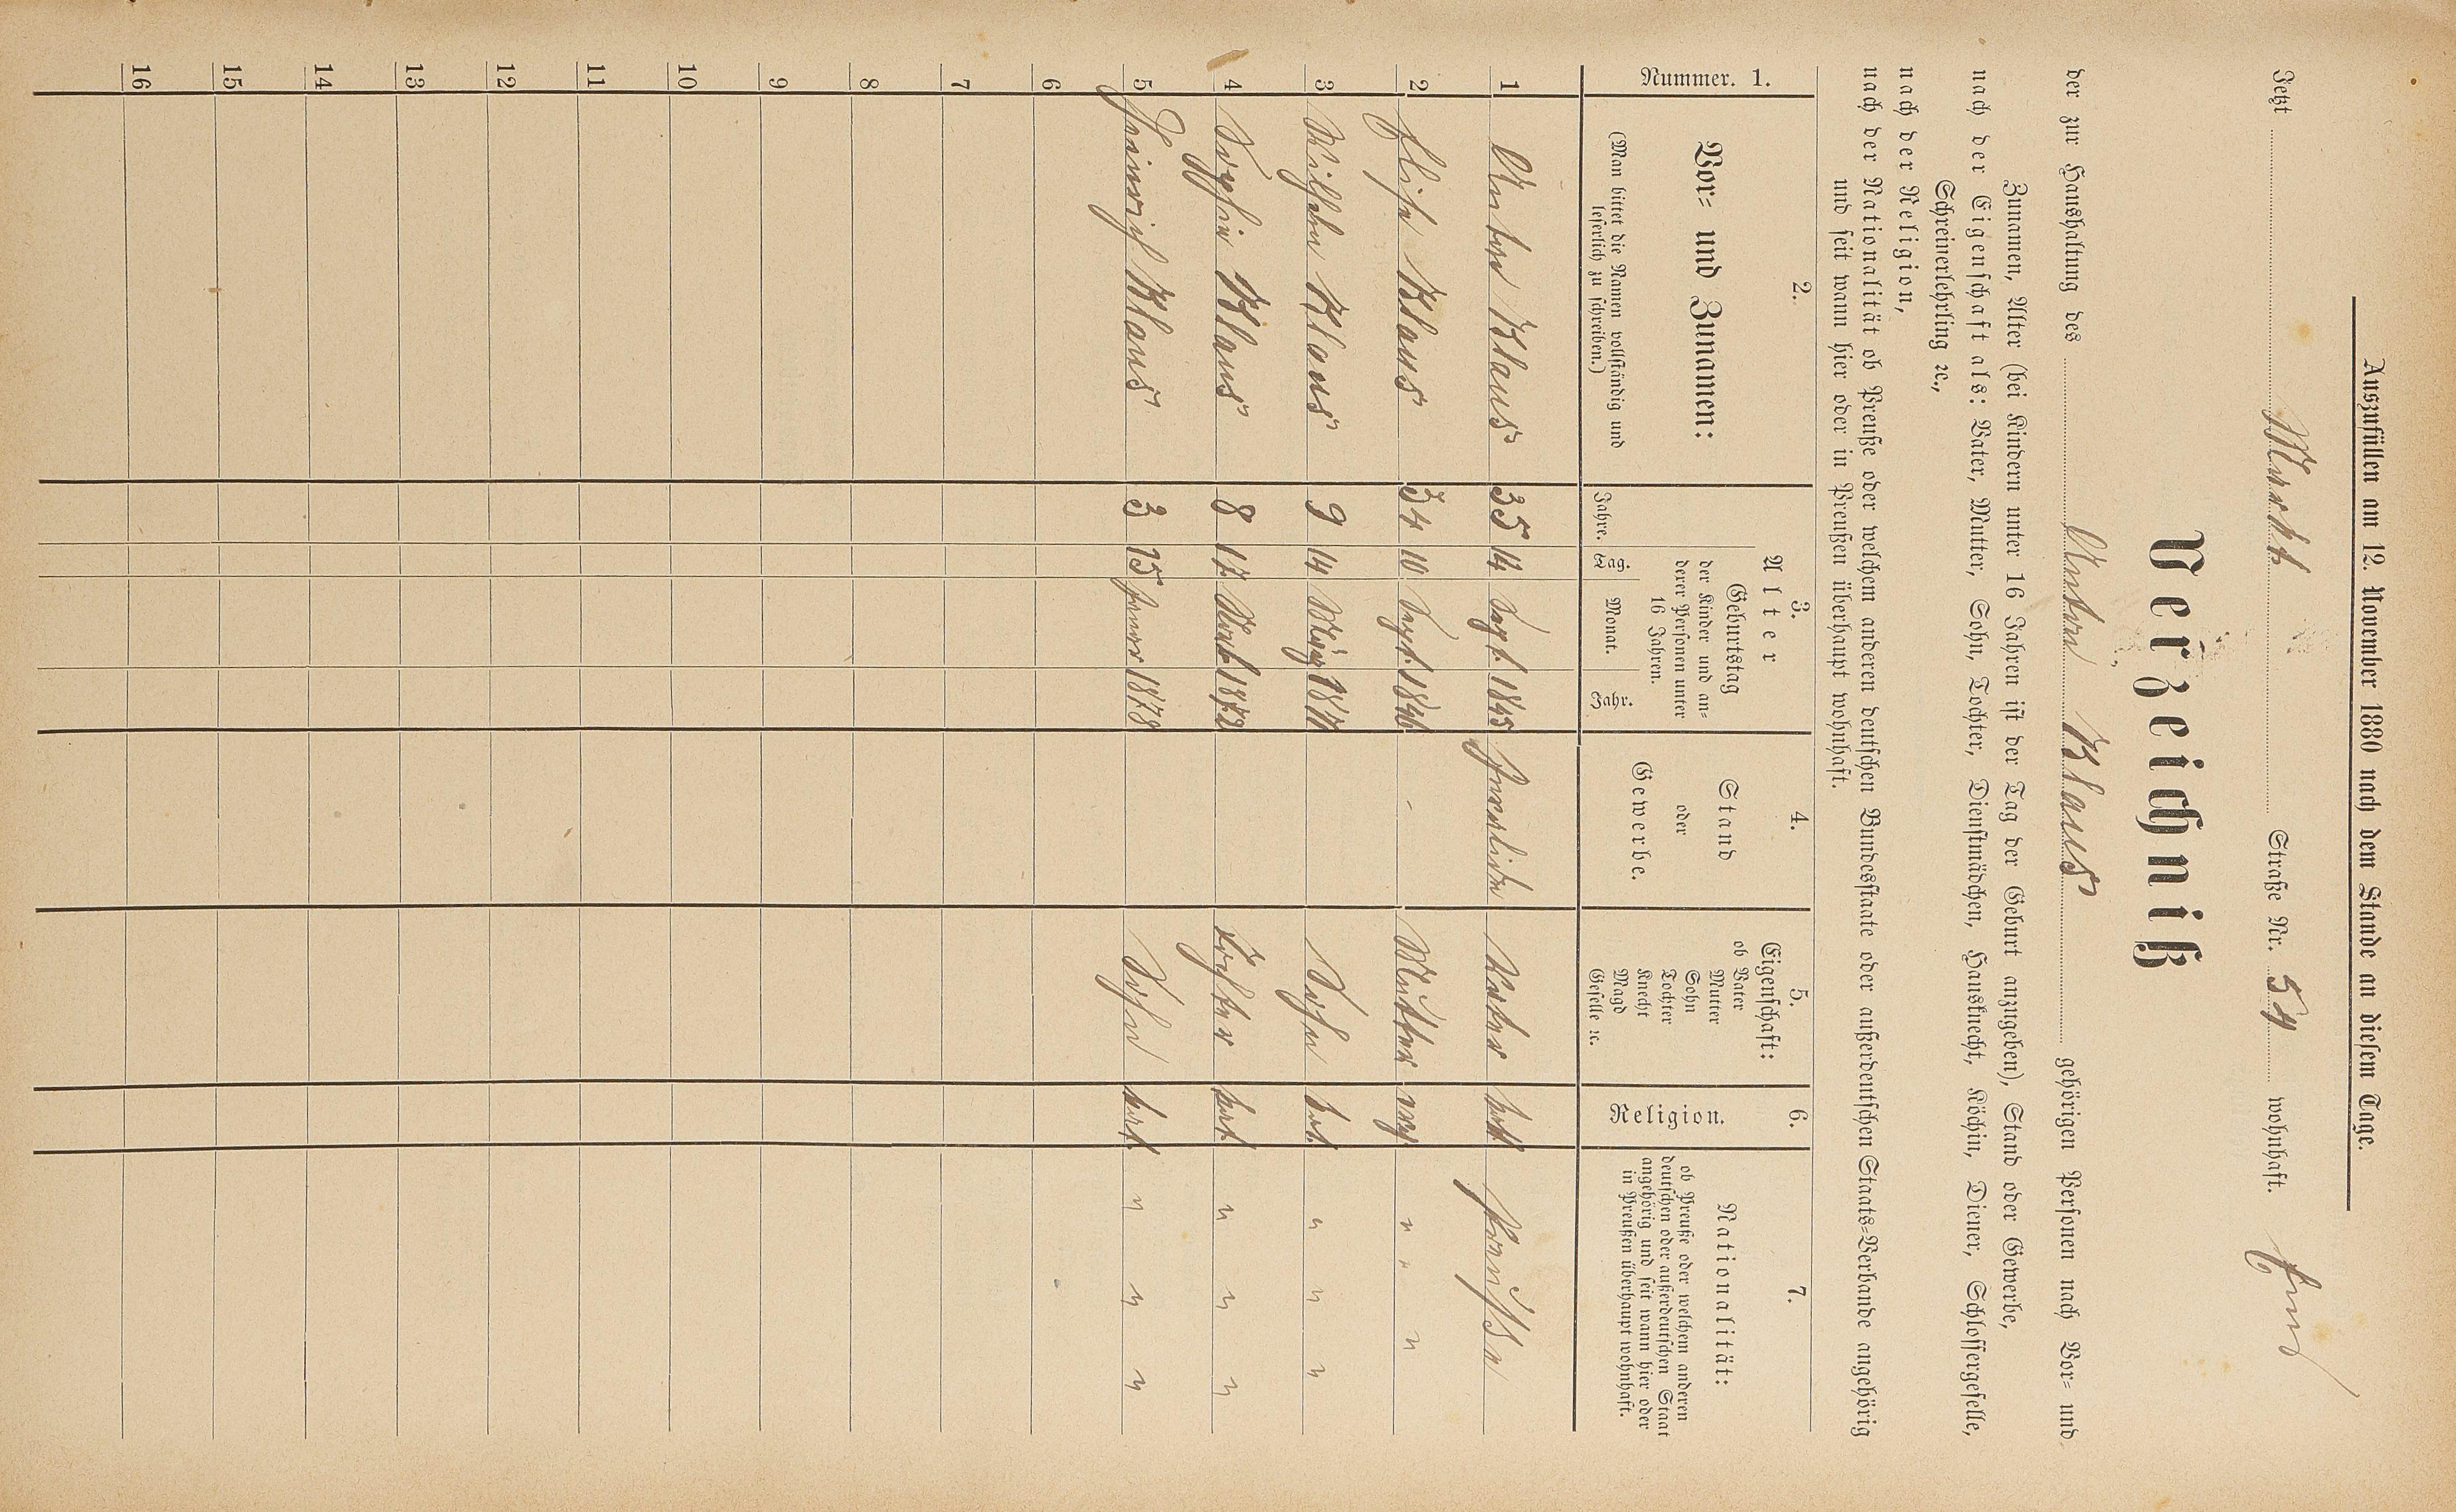 Auszufüllen am 12. November 1880 nach dem Stande an diesem Tage.
Jetzt Markt Straße Nr. 54 wohnhaft.
Verzeichniß
der zur Haushaltung des Anton Klaus gehörigen Personen nach Vor- und
Zunamen, Alter (bei Kindern unter 16 Jahren ist der Tag der Geburt anzugeben), Stand oder Gewerbe,
nach der Eigenschaft als: Vater, Mutter, Sohn, Tochter, Dienstmädchen, Hausknecht, Köchin, Diener, Schlossergeselle,
Schreinerlehrling ꝛc.,
nach der Religion,
nach der Nationalität ob Preuße oder welchem anderen deutschen Bundesstaate oder außerdeutschen Staats-Verbande angehörig
und seit wann hier oder in Preußen überhaupt wohnhaft.
Nummer. 1.
2.
Vor- und Zunamen:
(Man bittet die Namen vollständig und
leserlich zu schreiben.)
3.
Alter
Jahre.
Geburtstag
der Kinder und an-
derer Personen unter
16 Jahren.
Tag. Monat. Jahr.
4.
Stand
oder
Gewerbe.
5.
Eigenschaft:
ob Vater
Mutter
Sohn
Tochter
Knecht
Magd
Geselle ꝛc.
6.
Religion.
7.
Nationalität:
ob Preuße oder welchem anderen
deutschen oder außerdeutschen Staat
angehörig und seit wann hier oder
in Preußen überhaupt wohnhaft.
1 Anton Klaus 35 14 Sept. 1845 Vater kath Preuße
2 Elise Klaus 34 10 Sept. 1846 - Mutter evg " " "
3 Wilhelm Klaus 9 14 März 1871 Sohn kat. " " "
4 Sophia Klaus 8 17 1872 Tochter kat. " " "
5 Heinrich Klaus 3 15 Januar 1878 Sohn kat. " " "
6
7
8
9
10
11
12
13
14
15
16